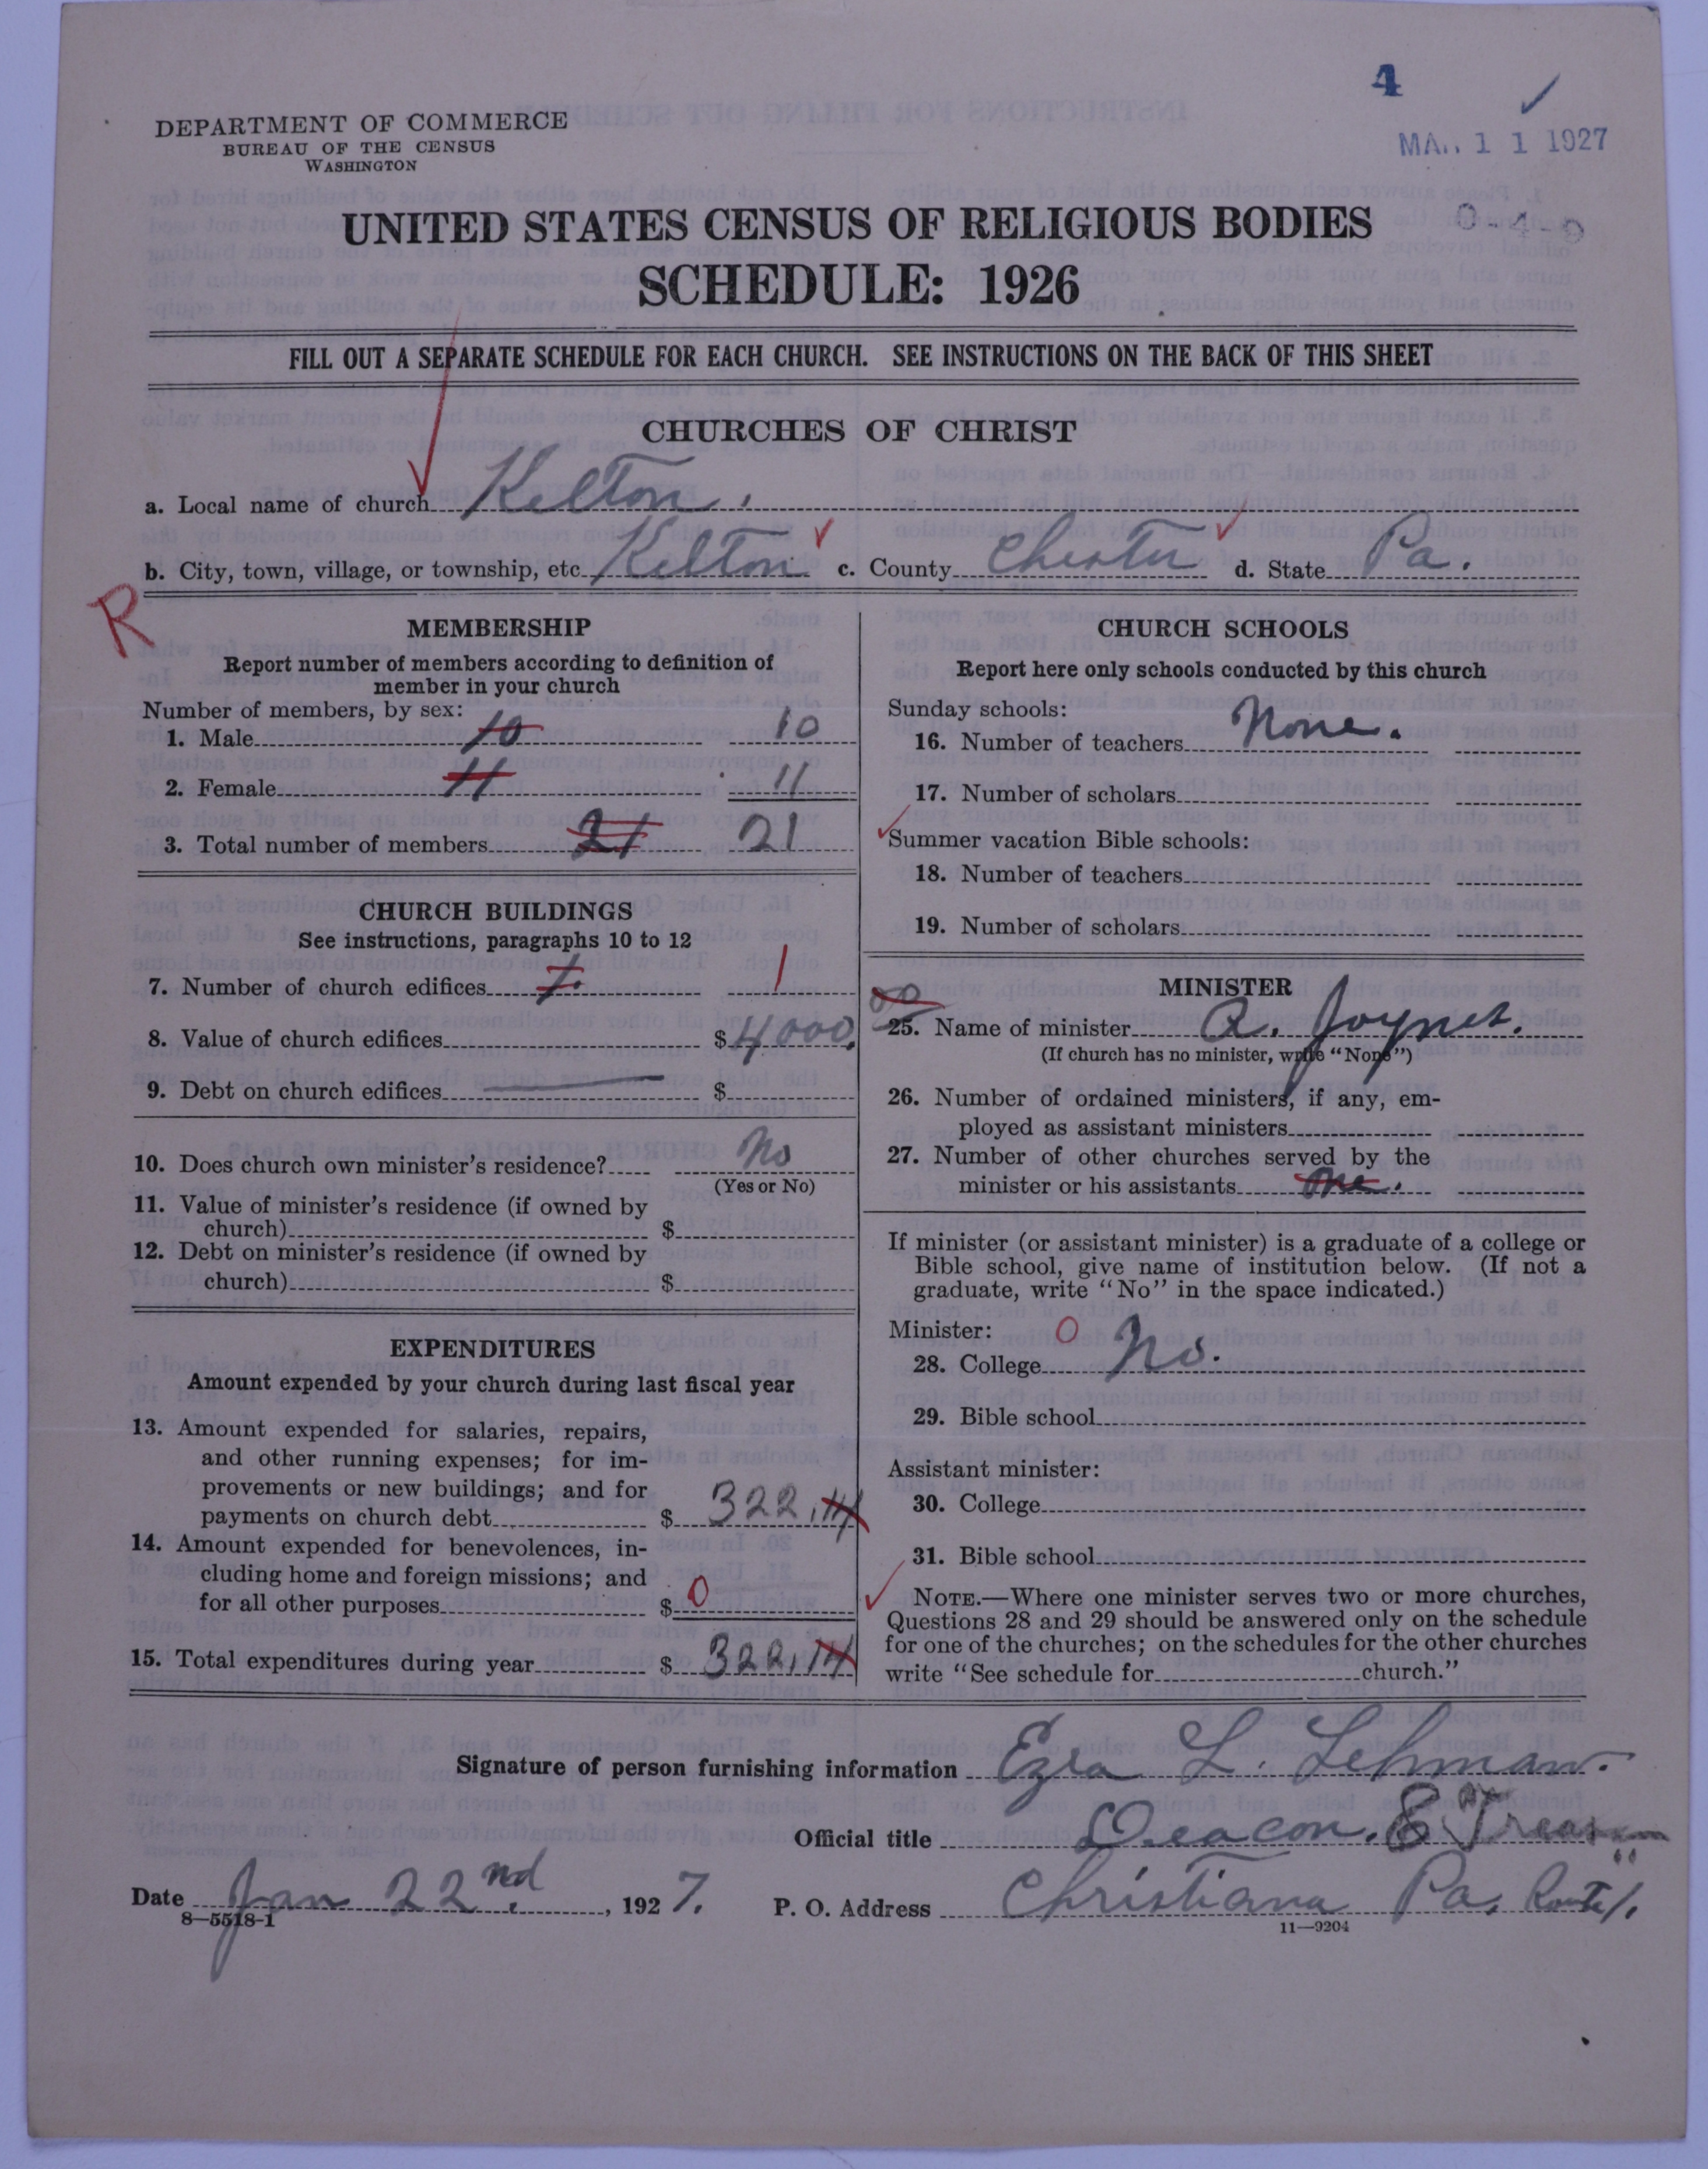 4
MAR 11 1927
DEPARTMENT OF COMMERCE
BUREAU OF THE CENSUS
WASHINGTON
UNITED STATES CENSUS OF RELIGIOUS BODIES
SCHEDULE: 1926
FILL OUT A SEPARATE SCHEDULE FOR EACH CHURCH. SEE INSTRUCTIONS ON THE BACK OF THIS SHEET
CHURCHES OF CHRIST
a. Local name of church Kelton.
b. City, town, village, or township, etc. Kelton c. County Chester d. State Pa.
R
MEMBERSHIP
Report number of members according to definition of
member in your church
Number of members, by sex:
1. Male 10 10
2. Female 11 11
3. Total number of members 21 21
CHURCH BUILDINGS
See instructions, paragraphs 10 to 12
7. Number of church edifices 1. 1
8. Value of church edifices $4000.
9. Debt on church edifices $
10. Does church own minister's residence? No
(Yes or No)
11. Value of minister's residence (if owned by
church) $
12. Debt on minister's residence (if owned by
church) $
EXPENDITURES
Amount expended by your church during last fiscal year
13. Amount expended for salaries, repairs,
and other running expenses; for im-
provements or new buildings; and for
payments on church debt $ 322.14
14. Amount expended for benevolences, in-
cluding home and foreign missions; and
for all other purposes $ 0
15. Total expenditures during year $ 322.14
CHURCH SCHOOLS
Report here only schools conducted by this church
Sunday schools:
16. Number of teachers None.
17. Number of scholars
Summer vacation Bible schools:
18. Number of teachers
19. Number of scholars
MINISTER
25. Name of minister A. Joynes.
(If church has no minister, write "None")
26. Number of ordained ministers, if any, em-
ployed as assistant ministers
27. Number of other churches served by the
minister or his assistants one.
If minister (or assistant minister) is a graduate of a college or
Bible school, give name of institution below. (If not a
graduate, write "No" in the space indicated.)
Minister: 0
28. College No.
29. Bible school
Assistant minister:
30. College
31. Bible school
NOTE.—Where one minister serves two or more churches,
Questions 28 and 29 should be answered only on the schedule
for one of the churches; on the schedules for the other churches
write "See schedule for church."
Signature of person furnishing information Ezra L. Lehman.
Official title Deacon. & Treas
Date Jan 22nd, 1927. P. O. Address Christiana Pa. Route 1.
8—5518-1
11—9204